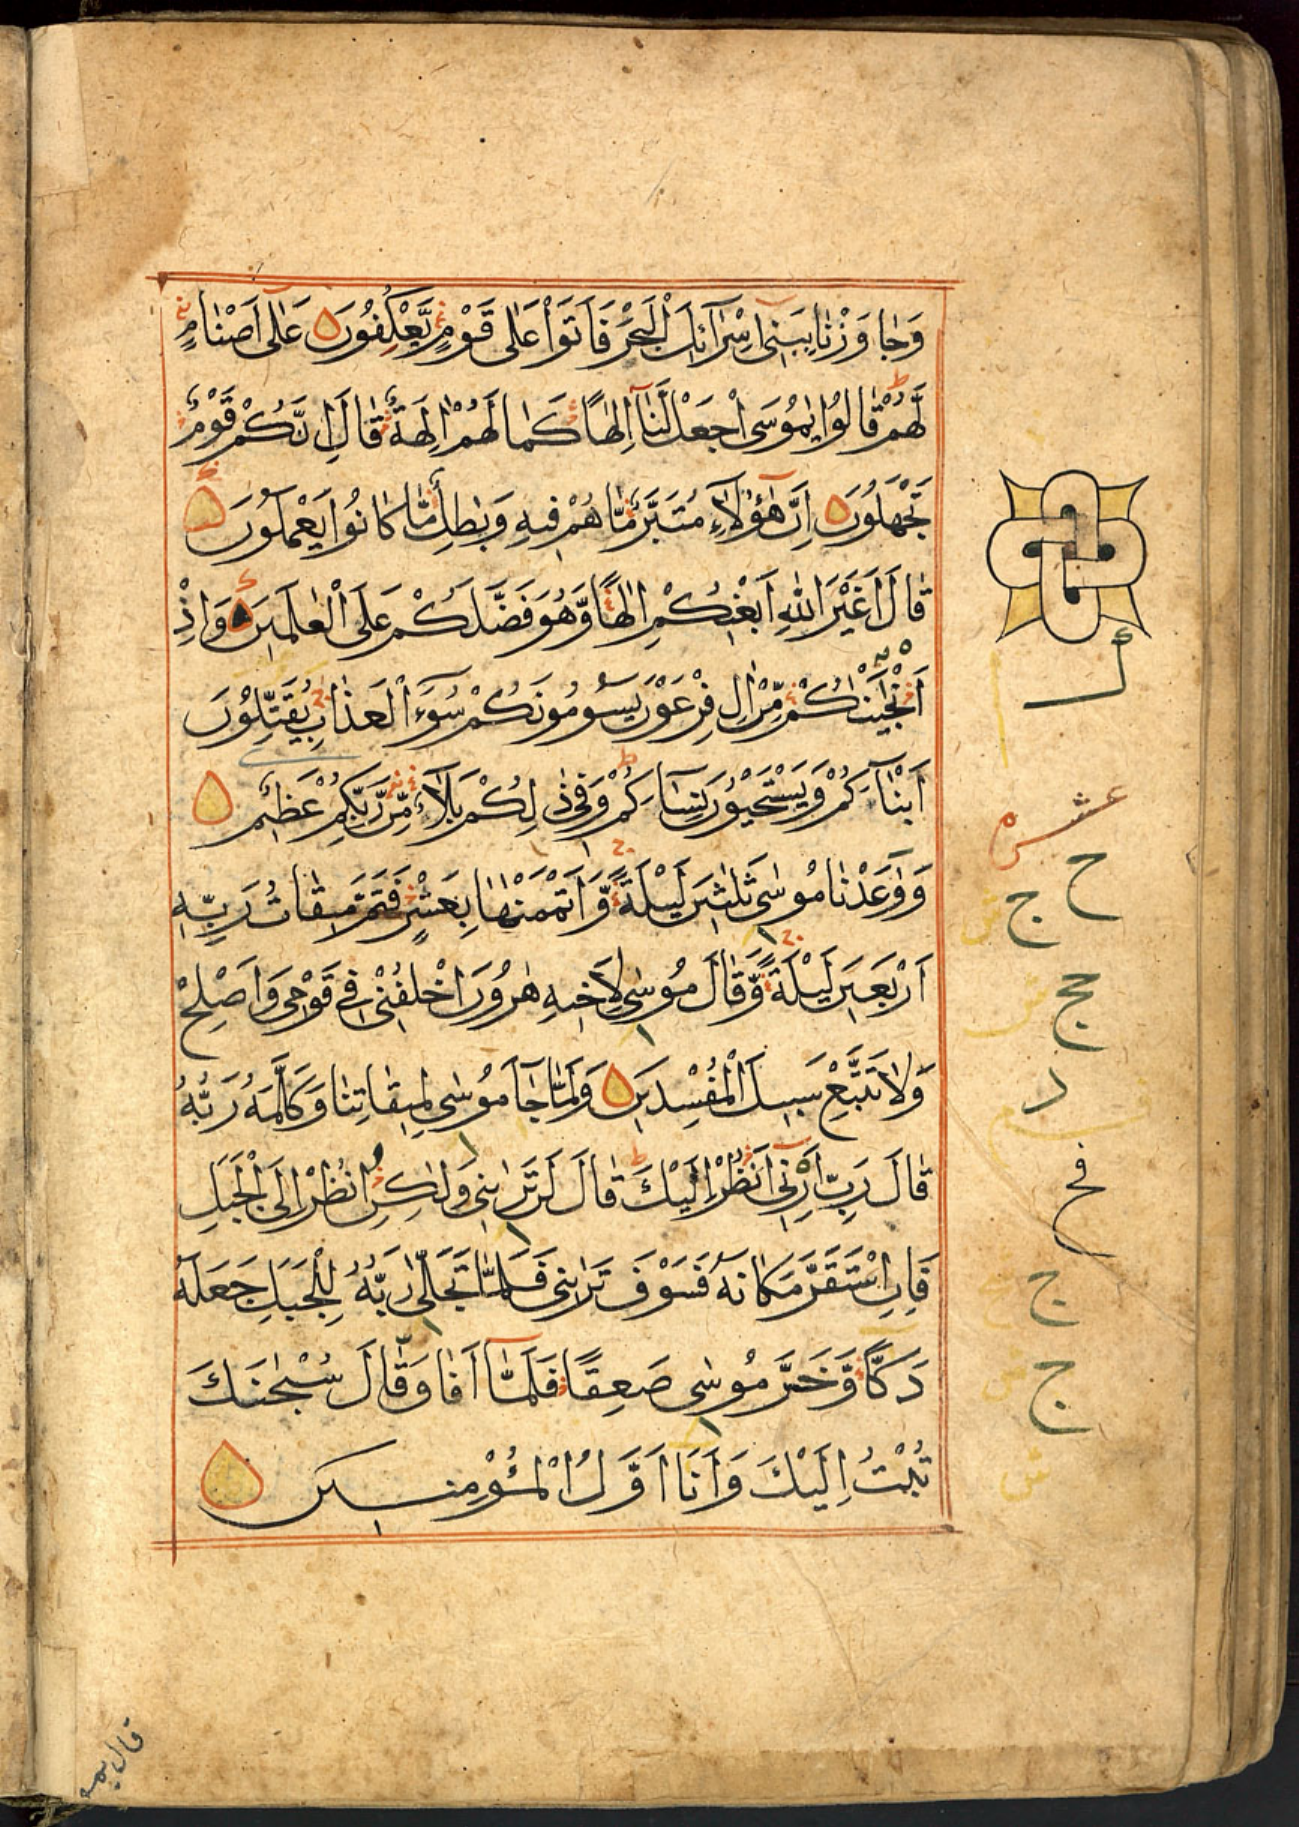 وَجَاوَزْنَا بِبَنِي اِسْرَآئِلَ الْبَحْرَ فَاَتَوْا عَلٰى قَوْمٍ يَّعْكِفُوْنَ عَلٰى اَصْنَامٍ
لَّهُمْ قَالُوْا يٰمُوْسَى اجْعَلْ لَّنَا اِلٰهًا كَمَا لَهُمْ اٰلِهَةٌ قَالَ اِنَّكُمْ قَوْمٌ
تَجْهَلُوْنَ اِنَّ هٰٓؤُلَآءِ مُتَبَّرٌ مَّا هُمْ فِيهِ وَبٰطِلٌ مَّا كَانُوْا يَعْمَلُوْنَ
قَالَ اَغَيْرَ اللّٰهِ اَبْغِيْكُمْ اِلٰهًا وَّهُوَ فَضَّلَكُمْ عَلَى الْعٰلَمِيْنَ وَاِذْ
اَنْجَيْنٰكُمْ مِّنْ اٰلِ فِرْعَوْنَ يَسُوْمُوْنَكُمْ سُوْٓءَ الْعَذَابِ يُقَتِّلُوْنَ
اَبْنَآءَكُمْ وَيَسْتَحْيُوْنَ نِسَآءَكُمْ وَفِي ذٰلِكُمْ بَلَآءٌ مِّنْ رَّبِّكُمْ عَظِيْمٌ
وَوٰعَدْنَا مُوْسٰى ثَلٰثِيْنَ لَيْلَةً وَّاَتْمَمْنٰهَا بِعَشْرٍ فَتَمَّ مِيْقَاتُ رَبِّهٖ
اَرْبَعِيْنَ لَيْلَةً وَّقَالَ مُوْسٰى لِاَخِيْهِ هٰرُوْنَ اخْلُفْنِي فِي قَوْمِي وَاَصْلِحْ
وَلَا تَتَّبِعْ سَبِيْلَ الْمُفْسِدِيْنَ وَلَمَّا جَآءَ مُوْسٰى لِمِيْقَاتِنَا وَكَلَّمَهُ رَبُّهُ
قَالَ رَبِّ اَرِنِيْٓ اَنْظُرْ اِلَيْكَ قَالَ لَنْ تَرٰىنِي وَلٰكِنِ انْظُرْ اِلَى الْجَبَلِ
فَاِنِ اسْتَقَرَّ مَكَانَهُ فَسَوْفَ تَرٰىنِي فَلَمَّا تَجَلّٰى رَبُّهُ لِلْجَبَلِ جَعَلَهُ
دَكًّا وَّخَرَّ مُوْسٰى صَعِقًا فَلَمَّآ اَفَاقَ قَالَ سُبْحٰنَكَ
تُبْتُ اِلَيْكَ وَاَنَا اَوَّلُ الْمُؤْمِنِيْنَ
عشره
ح
ج
حج
د
فح
ج
ج
قال يمو